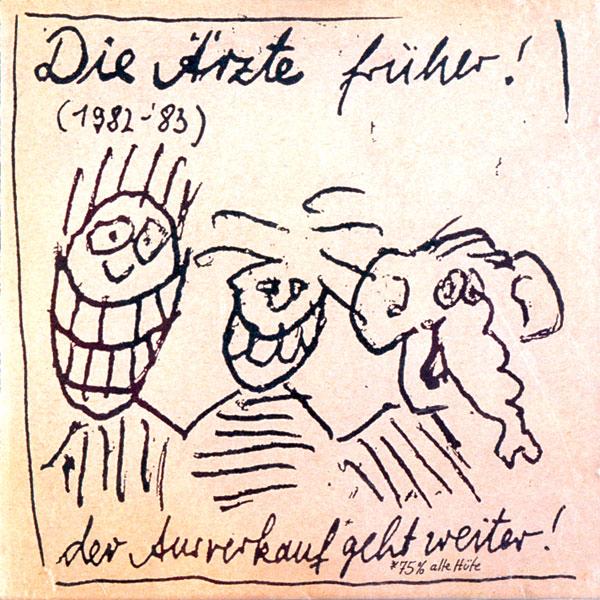 Die Ärzte früher!
(1982-'83)
der Ausverkauf* geht weiter!
*75% alte Hüte